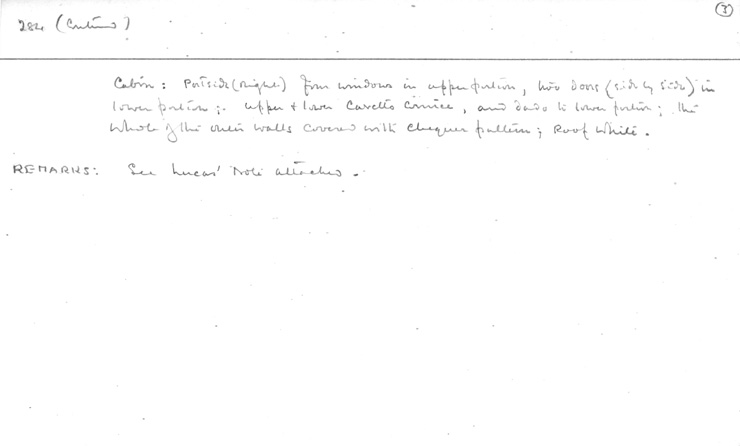 3
284 (Continued)
Cabin: Portside (right) four windows in upper portion, two doors (side by side) in
lower portion; upper + lower Cavetto Cornice, and dado to lower portion; the
whole of the outer walls covered with chequer pattern; Roof White.
REMARKS: See Lucas' Note attached.